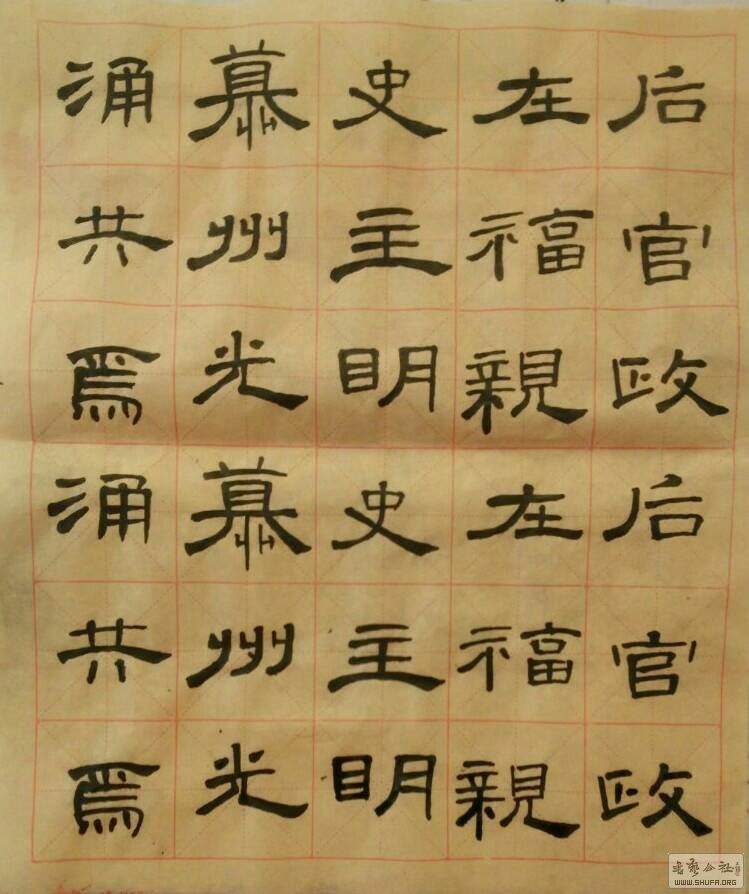 后官政后官政
在福親在福親
史主明史主明
慕州光慕州光
涌共焉涌共焉
书艺公社
WWW.SHUFA.ORG